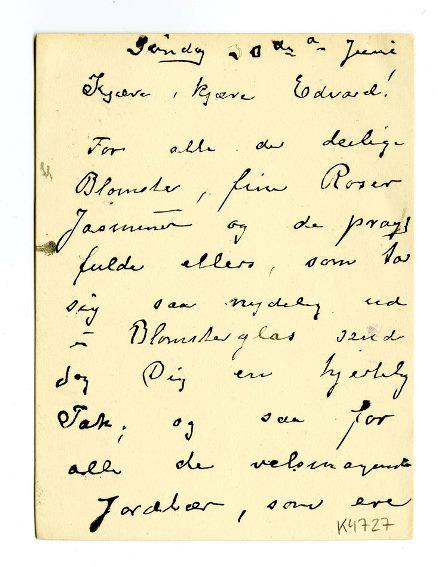 Søndag 20de Juni
Kjære, kjære Edvard!
For alle de deilige
Blomster, fine Roser
Jasminer og de pragt
fulde ellers, som tar
sig saa nydelig ud
i Blomsterglas send
Jeg Dig en hjertelig
Tak, og saa for
alle de velsmagende
Jordbær, som ere
K4727